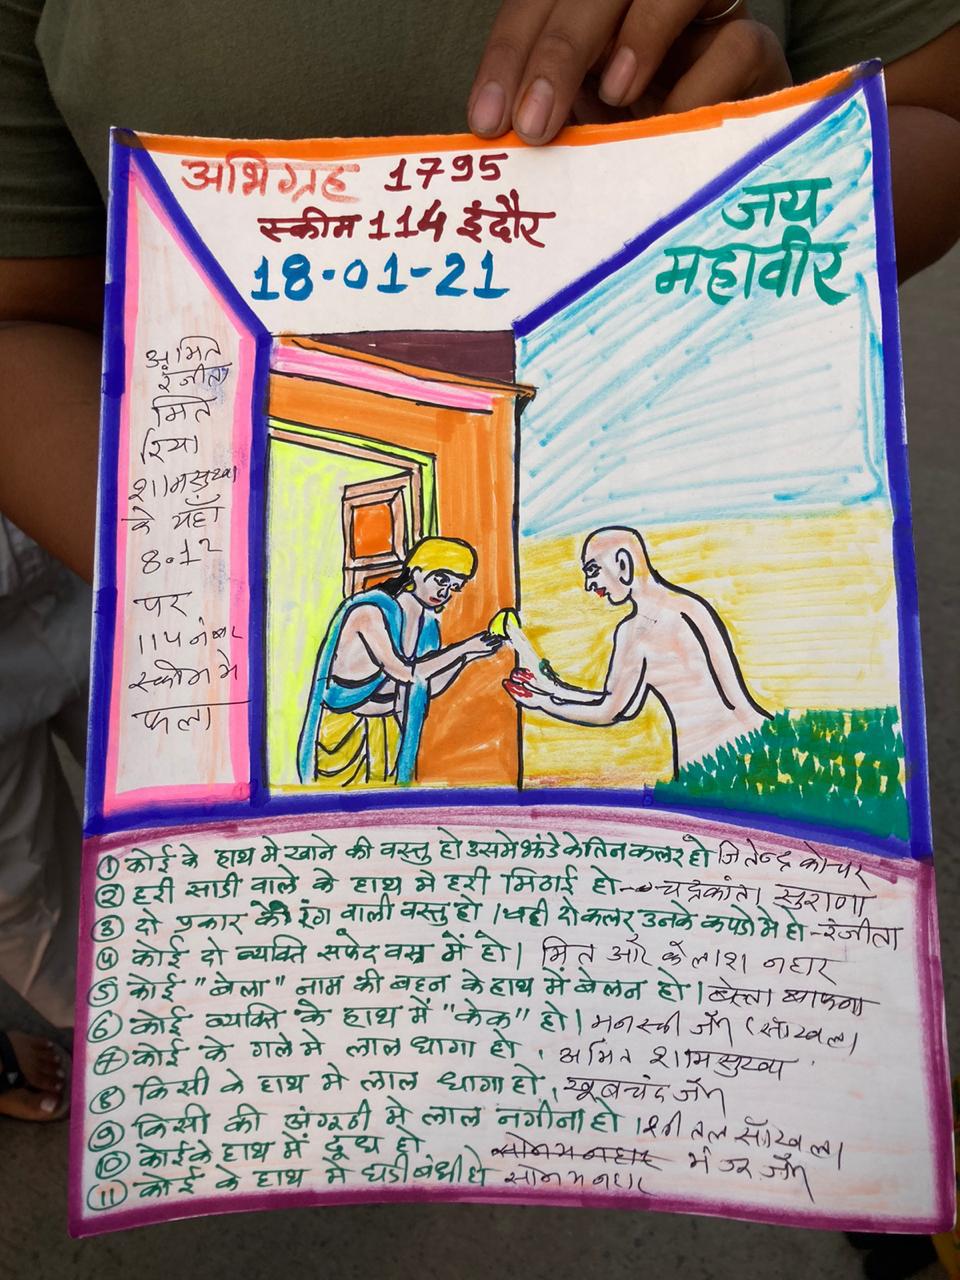 अभिग्रह 1795
स्कीम 114 इंदौर
18-01-21
जय
महावीर
अमित
रंजीता
मित
रिया
शामसुखा
के यहाँ
8.12
पर
114 नंबर
स्कीम मे
फला
① कोई के हाथ मे खाने की वस्तु हो उसमे झंडे के तिन कलर हो जितेन्द्र
② हरी साडी वाले के हाथ मे हरी मिठाई हो - चंद्रकांता सुराणा
③ दो प्रकार के रंग वाली वस्तु हो । वही दो कलर उनके कपडो मे हो - रंजीता
④ कोई दो व्यक्ति सफेद वस्त्र में हो। मित और कैलाश नहार
⑤ कोई "बेला" नाम की बहन के हाथ में बेलन हो।
⑥ कोई व्यक्ति के हाथ में "केक" हो। जैन (सांखला)
⑦ कोई के गले मे लाल धागा हो, अमित शामसुखा
⑧ किसी के हाथ मे लाल धागा हो, खूबचंद जैन
⑨ किसी की अंगूठी मे लाल नगीना हो। सांखला
⑩ कोई के हाथ में दूध हो जैन
⑪ कोई के हाथ मे घडी बंधी हो नहार